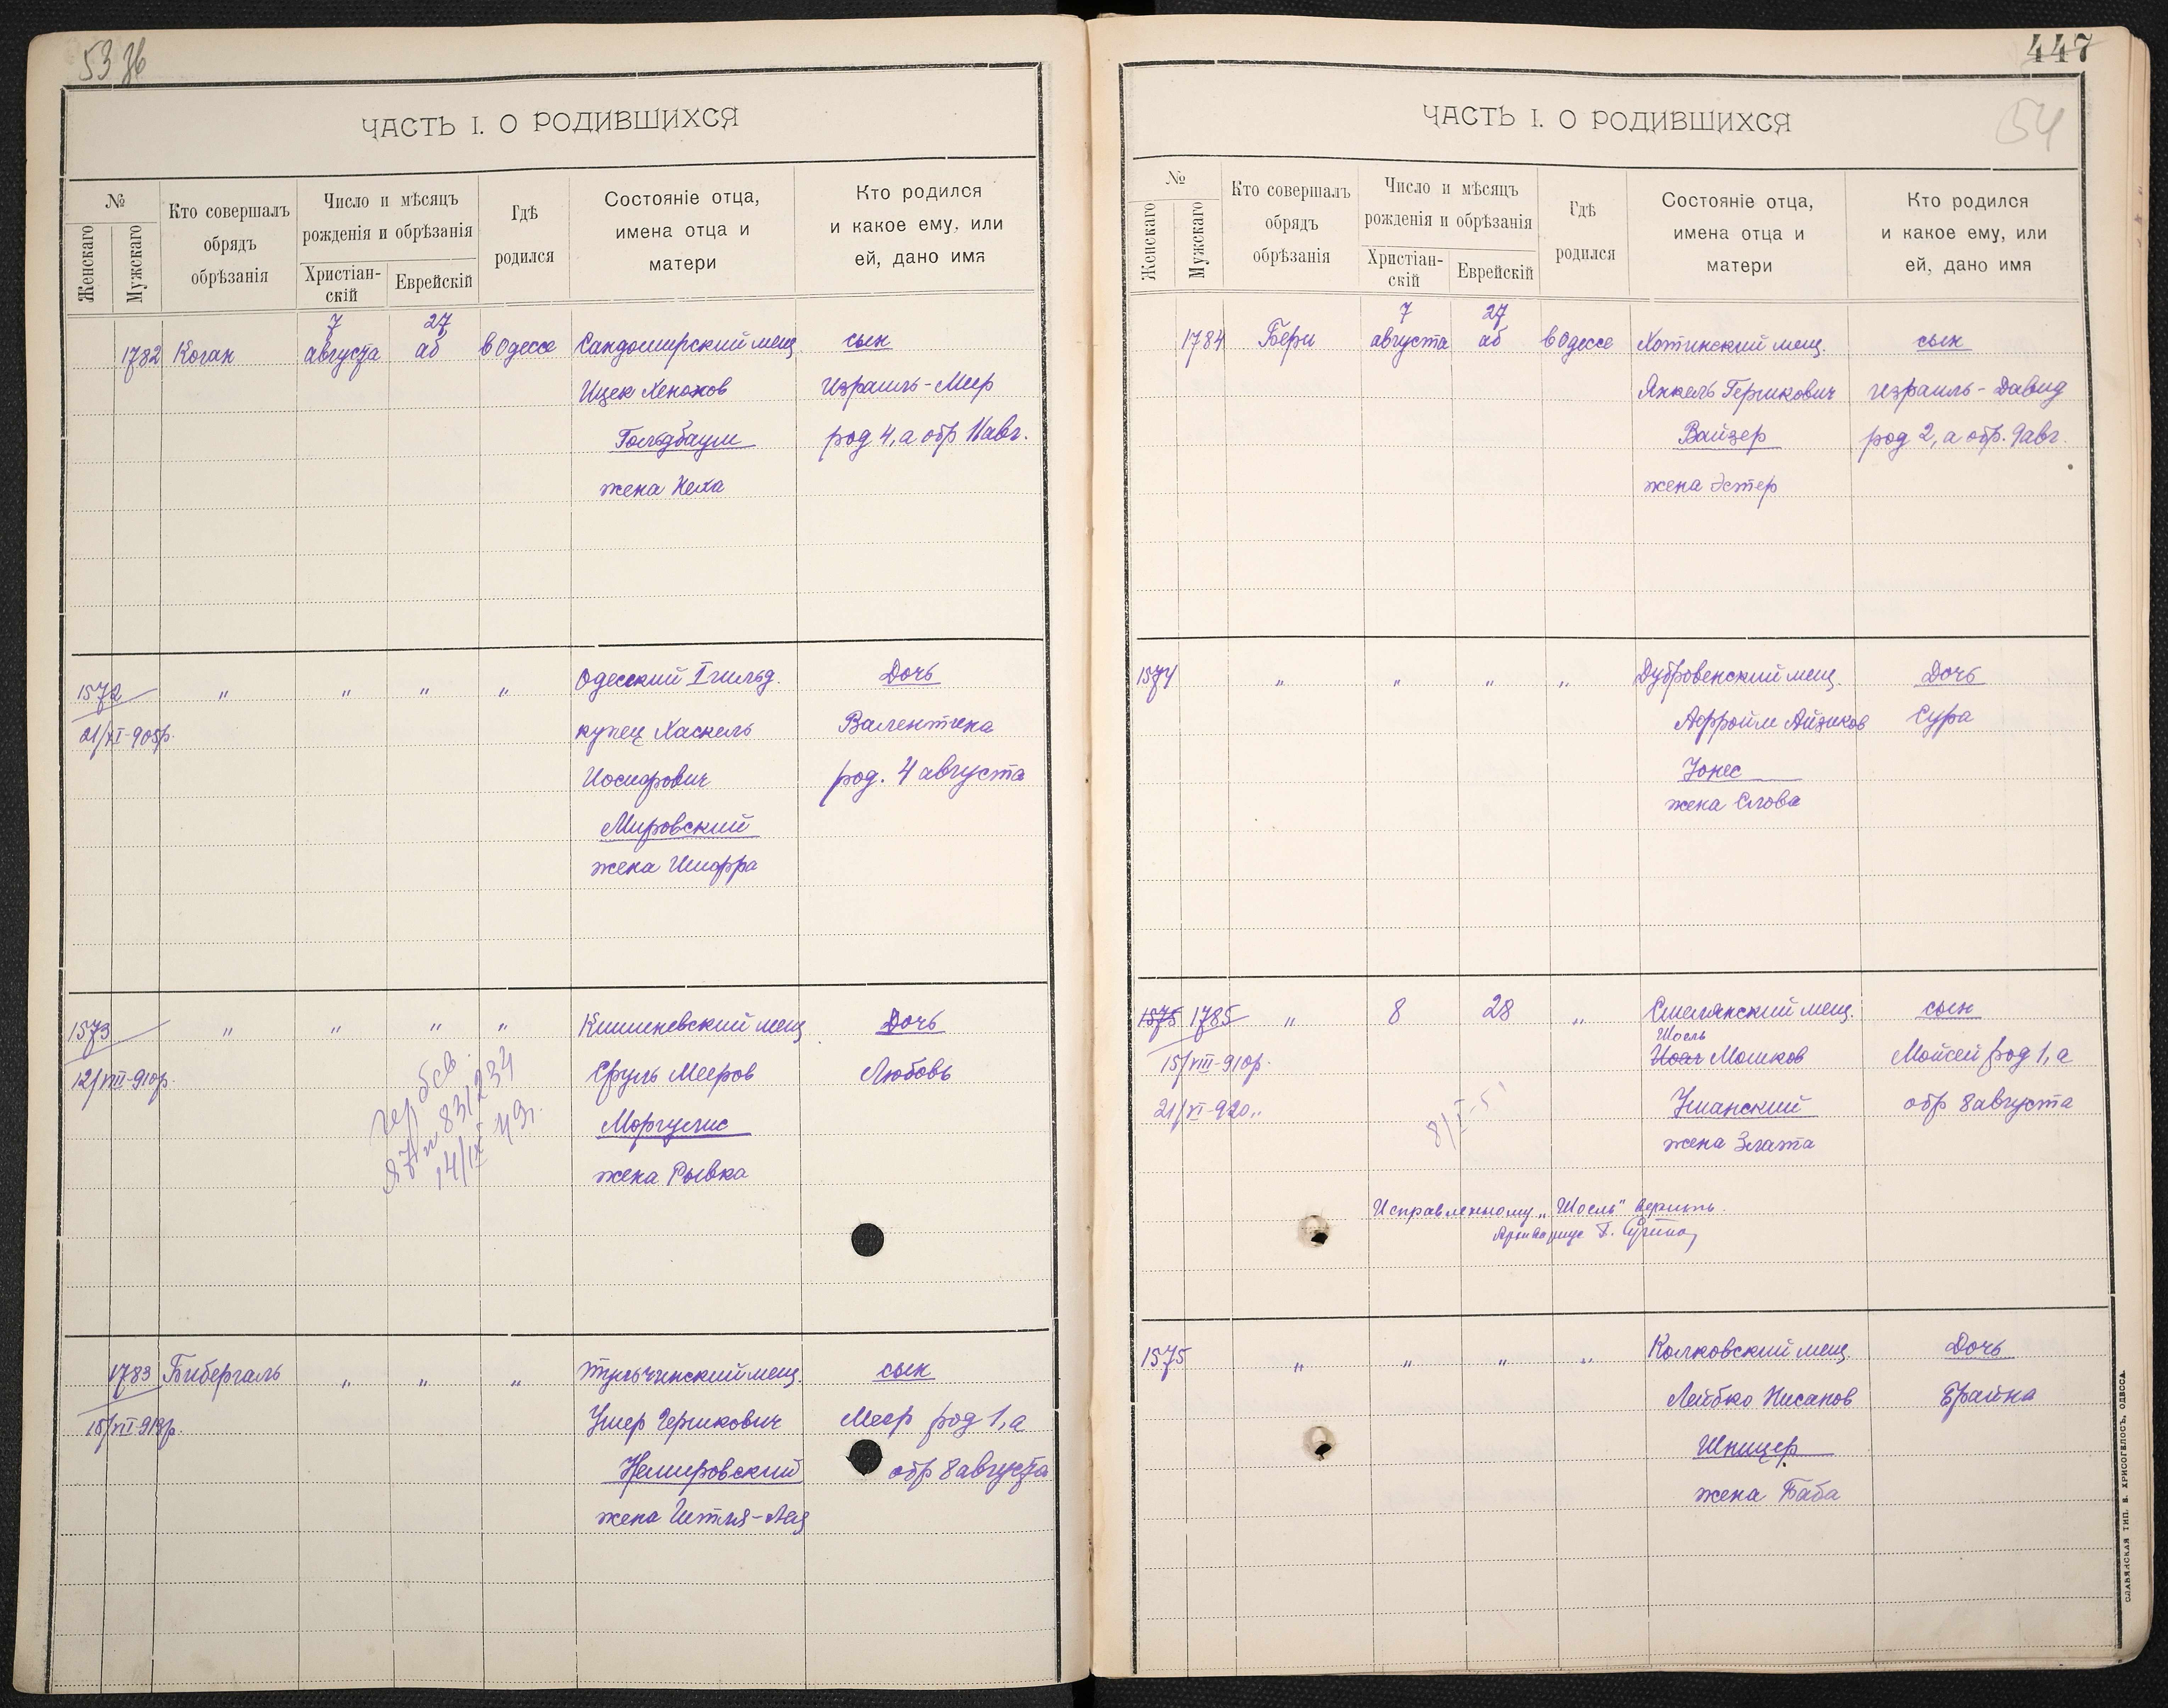 53 зв
ЧАСТЬ I. О РОДИВШИХСЯ
№
Женскаго
Мужскаго
Кто совершалъ
обрядъ
обрѣзанія
Число и мѣсяцъ
рожденія и обрѣзанія
Христіан-
скій
Еврейскій
Гдѣ
родился
Состояніе отца,
имена отца и
матери
Кто родился
и какое ему, или
ей, дано имя
7 27
1782 Коган августа аб в Одессе Сандомирский мещ. сын
Ицек Хенохов Израиль-Меер
Гольдбаум род 4, а обр 11 авг.
жена Неха
1572 " " " " Одесский I гильд. Дочь
21/XI-905р. купец Хаскель Валентина
Иосифович род. 4 августа
Мировский
жена Шифра
1573 " " " " Кишиневский мещ. Дочь
12/VIII-910р. Сруль Мееров Любовь
Моргулис
жена Рывка
14/IX 43г.
1783 Бибергаль " " " Тульчинский мещ. сын
Ушер Гершкович Меер род 1, а
Немировский обр 8 августа
жена
447
54
ЧАСТЬ I. О РОДИВШИХСЯ
№
Женскаго
Мужскаго
Кто совершалъ
обрядъ
обрѣзанія
Число и мѣсяцъ
рожденія и обрѣзанія
Христіан-
скій
Еврейскій
Гдѣ
родился
Состояніе отца,
имена отца и
матери
Кто родился
и какое ему, или
ей, дано имя
7 27
1784 Бери августа аб в Одессе Хотинский мещ. сын
Янкель Гершкович Израиль-Давид
Вайзер род 2, а обр. 9 авг.
жена Эстер
1574 " " " " Дубровенский мещ. Дочь
Афройм Айзиков Сура
Јонес
жена Слова
1575 1785 " 8 28 " Смелянский мещ. сын
Шоель
15/VIII-910р. Мошков Мойсей род 1, а
21/VI-920" Уманский обр 8 августа
жена Злата
8/I-51
Исправленному „Шоель" верить.
1575 " " " " Колковский мещ. Дочь
Лейбко Нисанов Брайна
Шницер
жена Баба
СЛАВЯНСКАЯ ТИП. Н. ХРИСОГЕЛОСЪ, ОДЕССА.